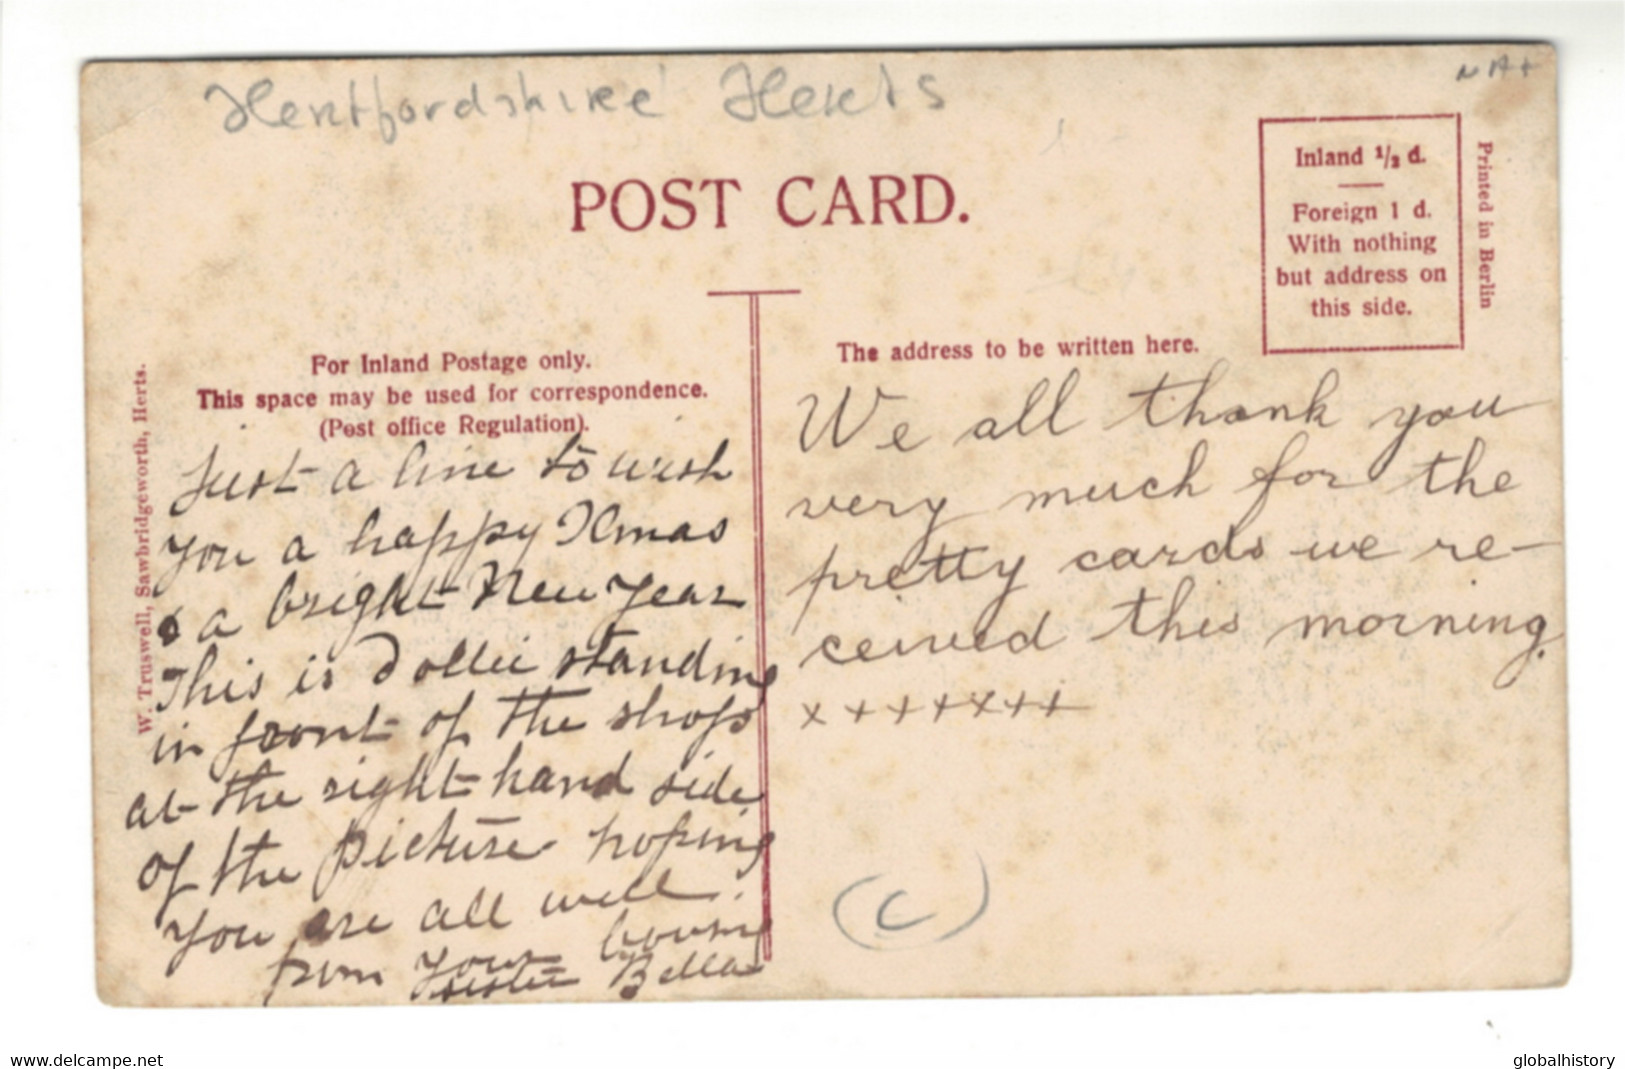 Hertfordshire Herts
POST CARD.
Inland ½ d.
Foreign 1 d.
With nothing
but address on
this side.
Printed in Berlin
W. Truswell, Sawbridgeworth, Herts.
For Inland Postage only.
This space may be used for correspondence.
(Post office Regulation).
Just a line to wish
you a happy Xmas
& a bright New Year
This is Dollie standing
in front of the shops
at the right hand side
of the picture hoping
you are all well
from your loving
sister Bella
The address to be written here.
We all thank you
very much for the
pretty cards we re-
ceived this morning.
x x x x x x x
(C)
www.delcampe.net
globalhistory